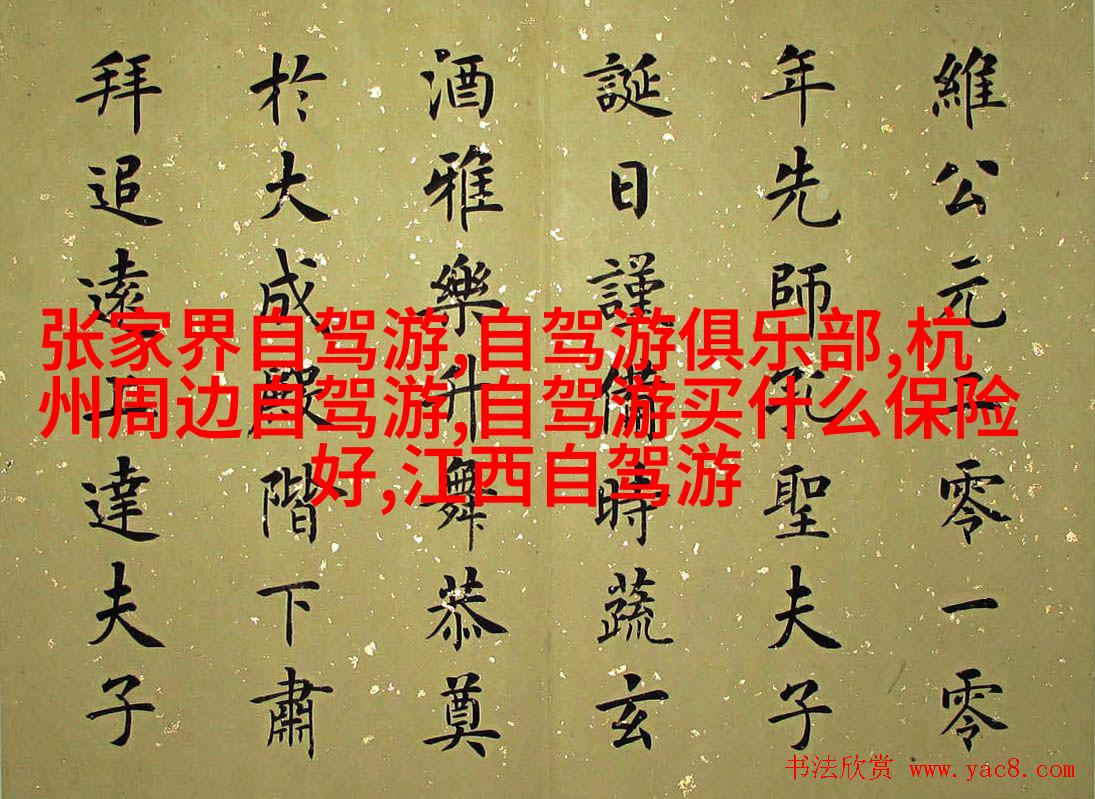 維公元二零一零
年先師孔聖夫子
誕日謹備時蔬玄
酒雅樂升舞恭奠
於大成殿階下肅
拜追遠上達夫子
张家界自驾游,自驾游俱乐部,杭
州周边自驾游,自驾游买什么保险
好,江西自驾游
书法欣赏 www.yac8.com